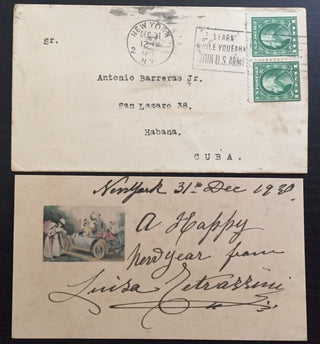 NEW YORK
DEC 31
12 M
N.Y.
2
LEARN
WHILE YOU EARN
JOIN U.S. ARMY
Sr.
Antonio Barreras Jr.
San Lazaro 38.
Habana.
CUBA.
New York 31st Dec 1920
A Happy
New Year from
Luisa Tetrazzini